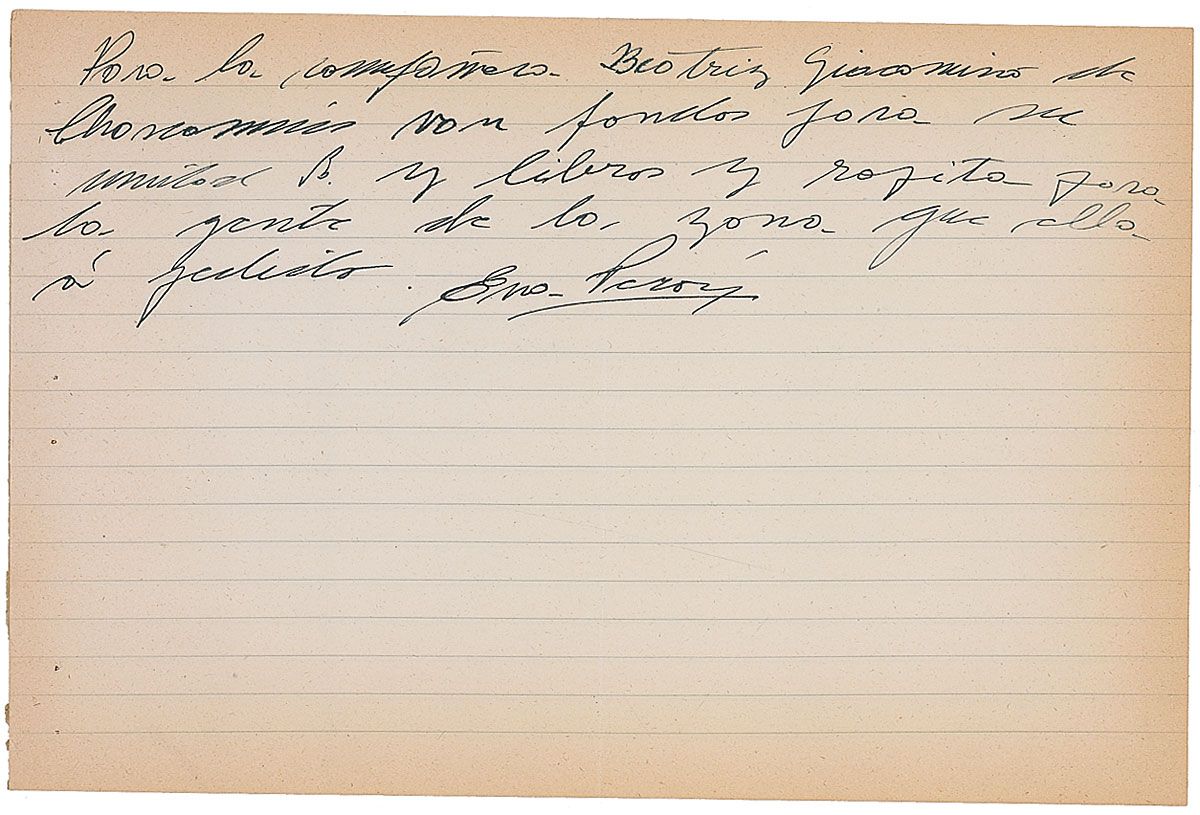 Para la compañera Beatriz Giacomino de
Chascomús van fondos para su
unidad B. y libros y ropita para
la gente de la zona que ella
á pedido. Eva Perón